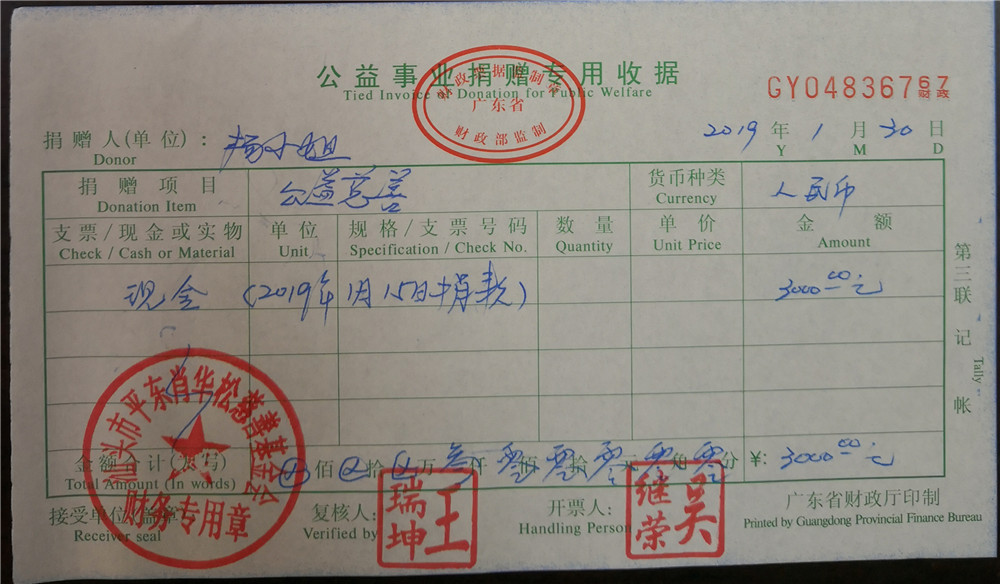 公益事业捐赠专用收据
Tied Invoice of Donation for Public Welfare
财政票据监制章
广东省
财政部监制
GY04836767
财政
捐赠人(单位): 杨小姐
Donor
2019 年 1 月 30 日
Y M D
捐赠项目 公益慈善 货币种类 人民币
Donation Item Currency
支票/现金或实物 单位 规格/支票号码 数量 单价 金额
Check / Cash or Material Unit Specification / Check No. Quantity Unit Price Amount
现金 (2019年1月15日捐款) 3000.00元
第三联 记帐
Tally
金额合计(大写) 佰 拾 万 叁 仟 零 佰 零 拾 零 元 零 角 零 分 ¥: 3000.00元
Total Amount (In words)
接受单位(盖章) 复核人: 开票人: 广东省财政厅印制
Receiver seal Verified by Handling Person Printed by Guangdong Provincial Finance Bureau
汕头市平东肖华松慈善基金会
财务专用章
王瑞坤
吴继荣